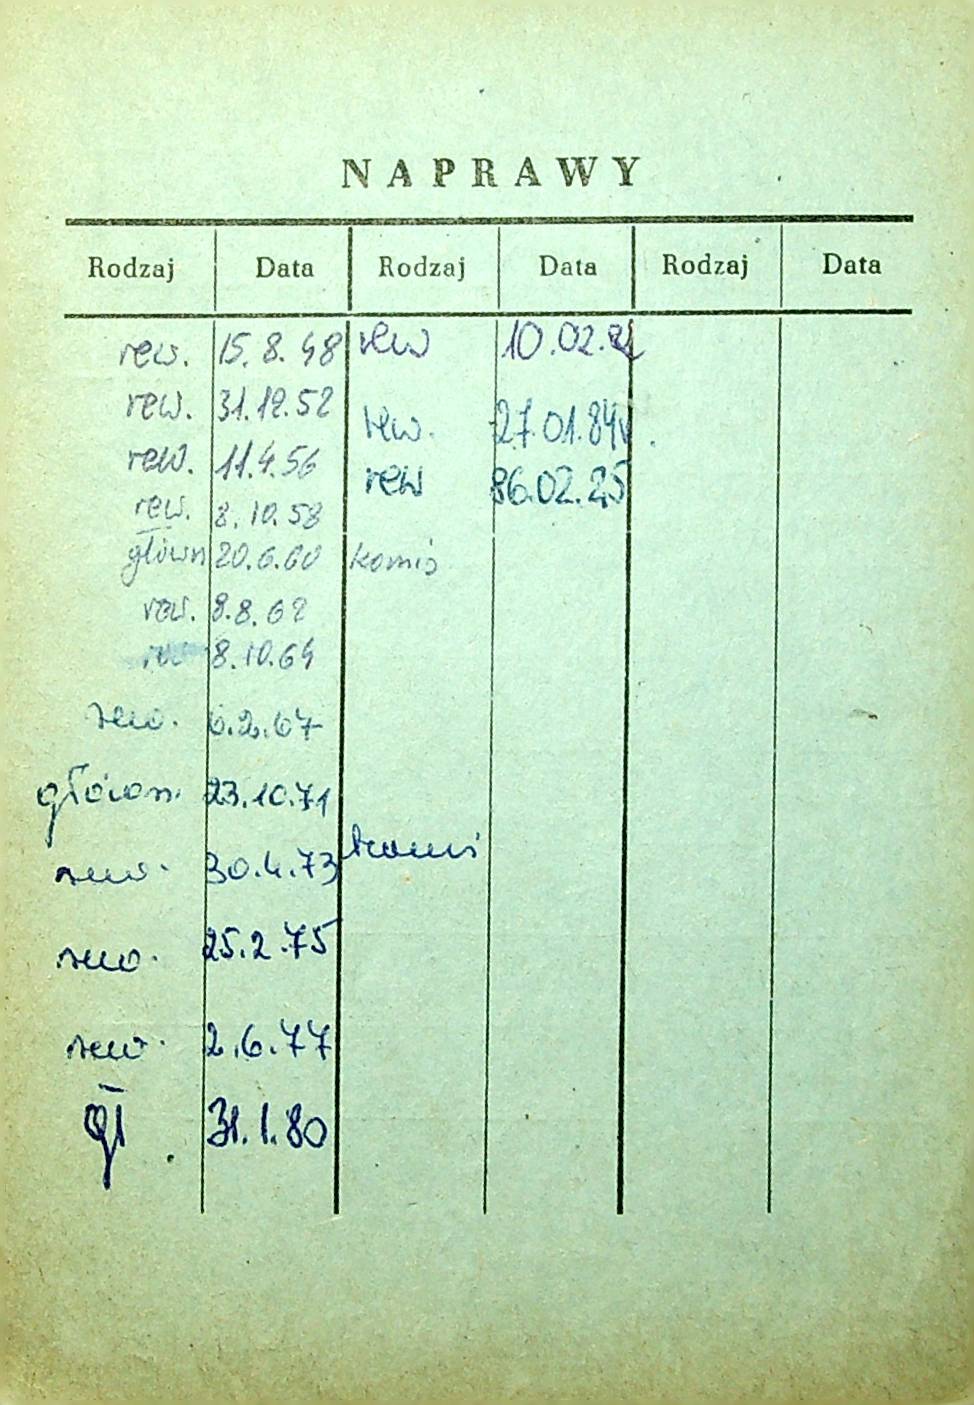 NAPRAWY
Rodzaj Data Rodzaj Data Rodzaj Data
rew. 15.8.48 rew 10.02.82
rew. 31.12.52
rew. 27.01.84
rew. 11.4.56
rew 86.02.25
rew. 8.10.58
główn 20.6.60 komis
rew. 8.8.62
rew 8.10.64
rew. 6.2.67
główn. 23.10.71
rew. 30.4.73 komis
rew. 25.2.75
rew. 2.6.77
gł 31.1.80